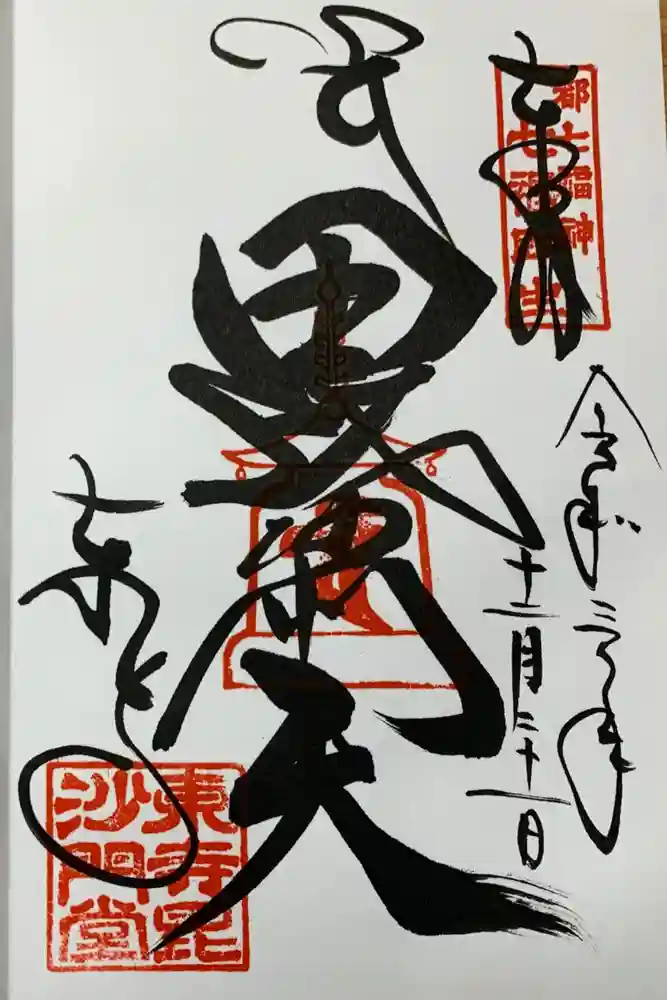 奉拝
都七福神
令和三年
十二月二十一日
毘沙門天
東寺
東寺毘
沙門堂